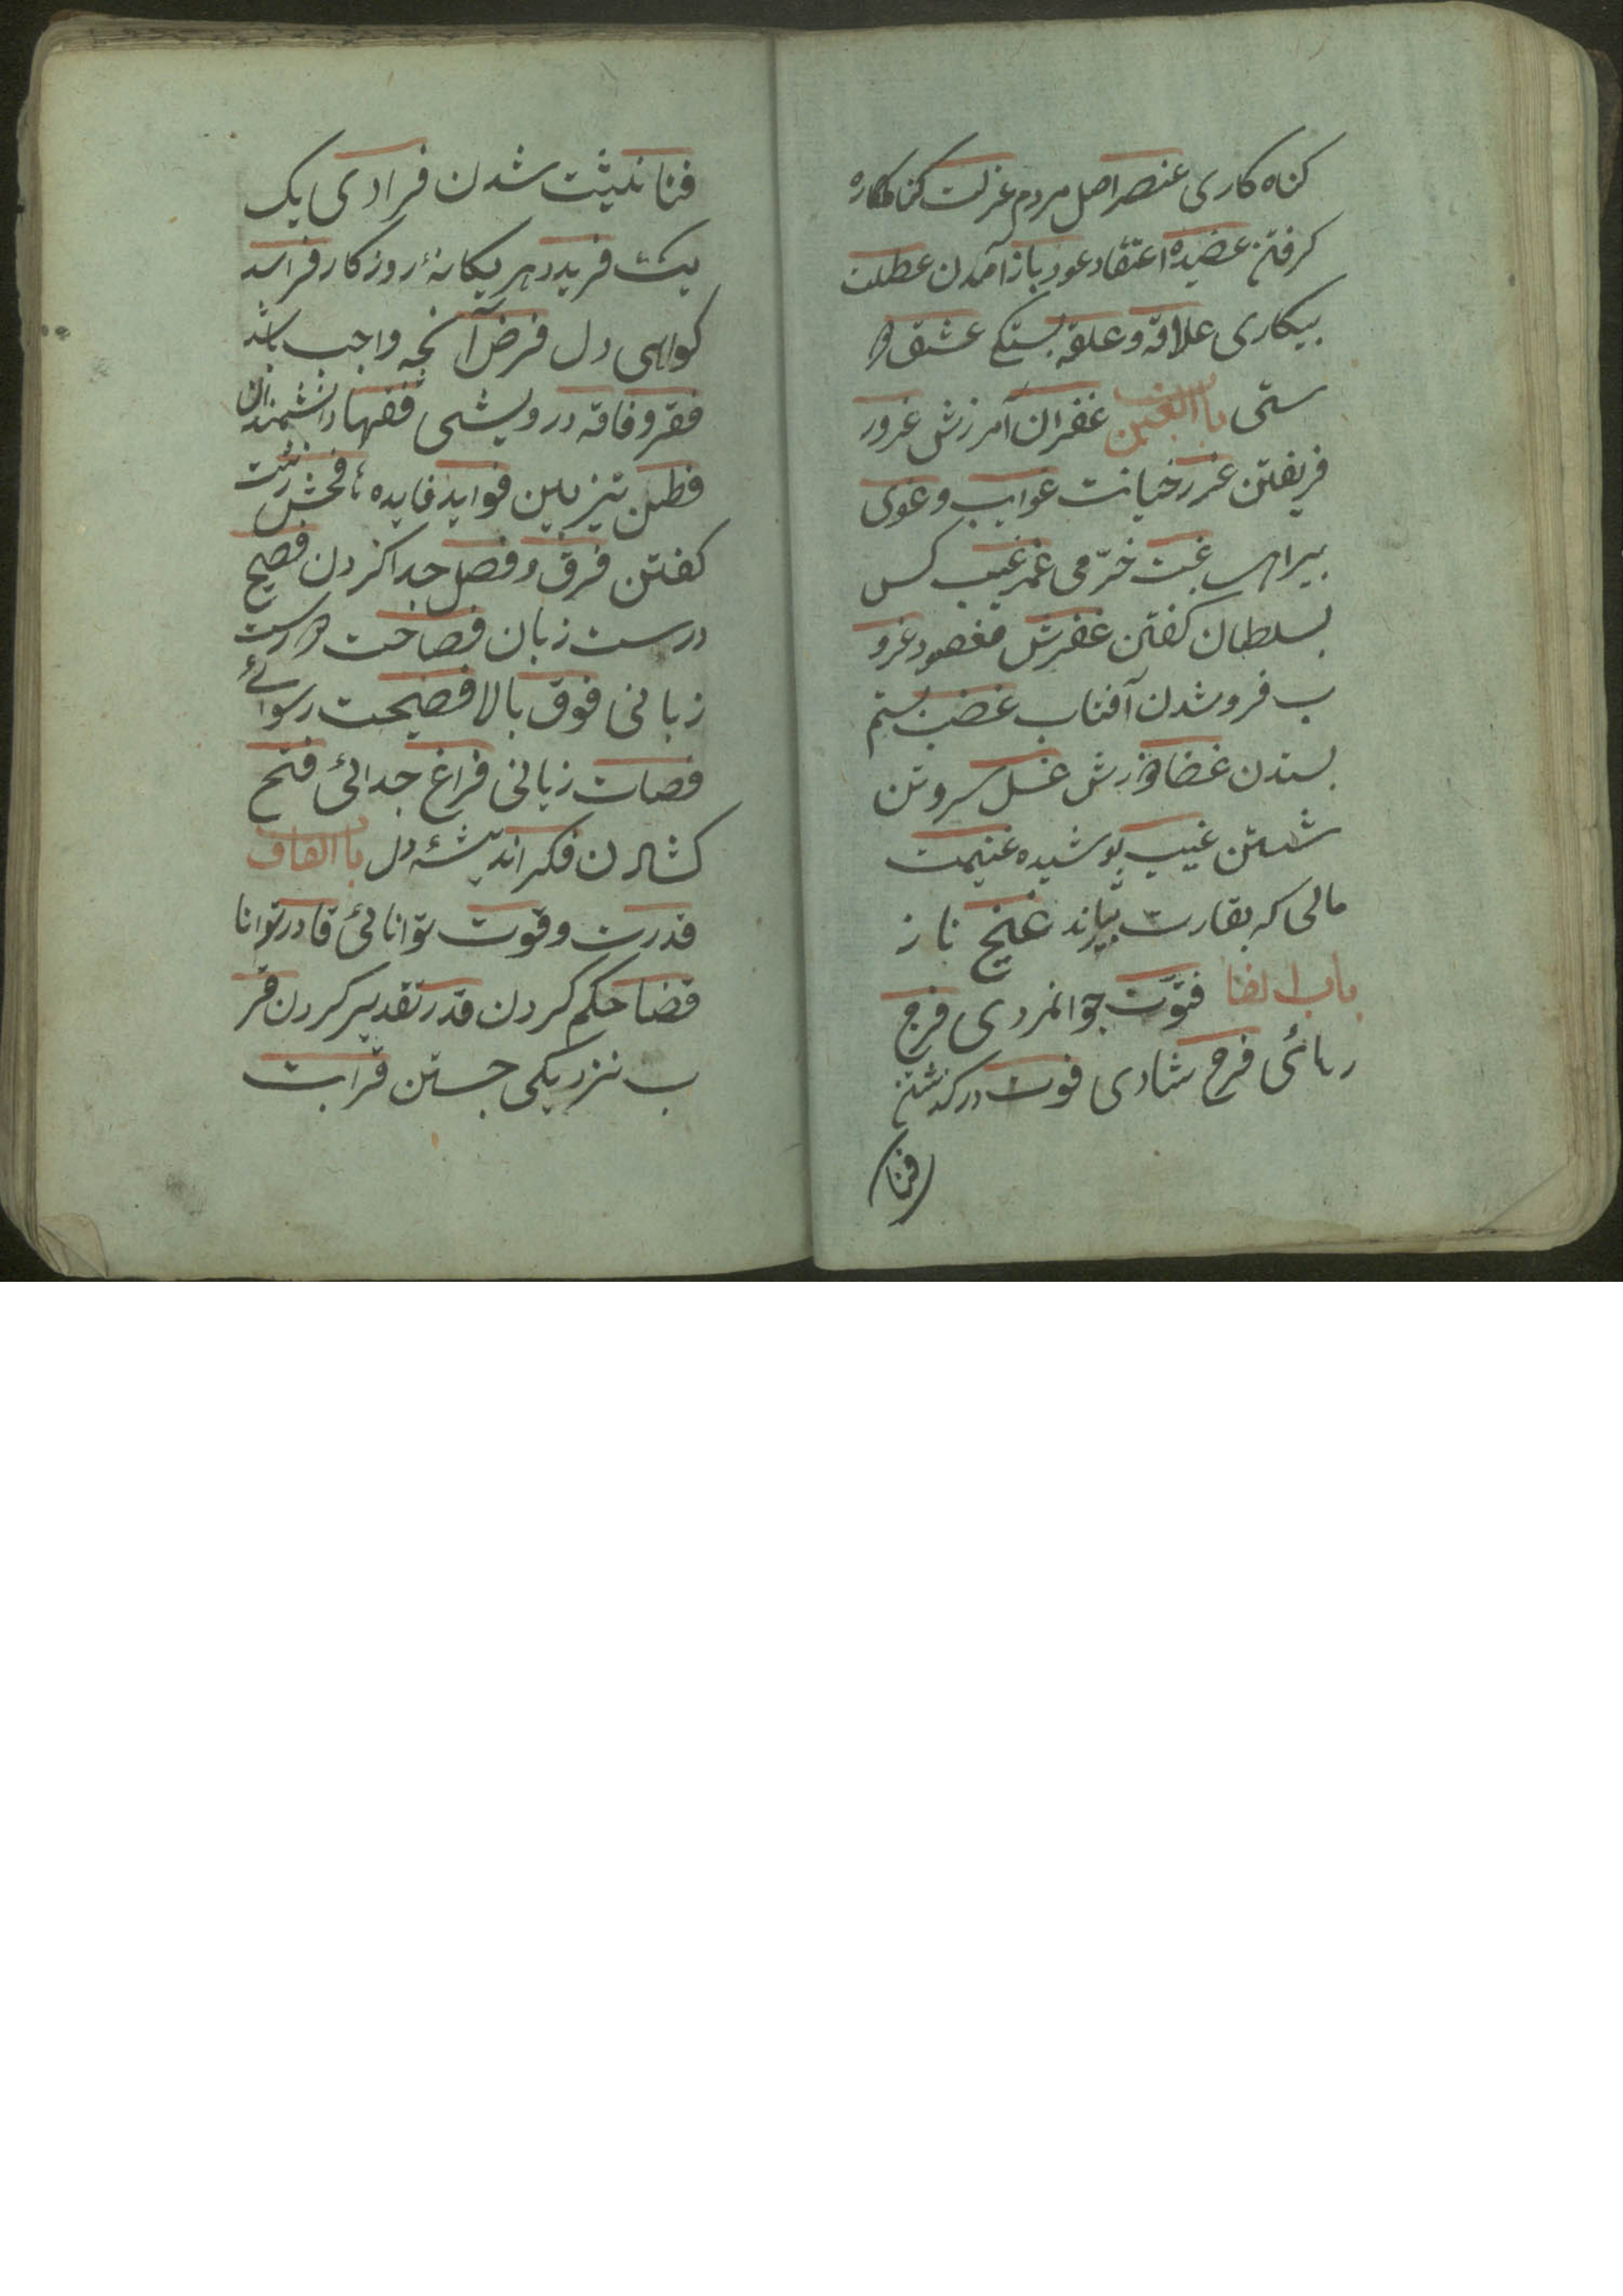 کناه کاری عنصر اصل مردم عزلت کناره
کرفتن عضیده اعتقاد عود باز آمدن عطلت
بیکاری علاقه و علقه بستکی عشق دو
ستی باب الغین غفران آمرزش غرور
فریفتن غرر خیانت غوایب و غوی
بیراهی غبت خرّمی غمر غیب کس
بسلطان کفتن غفرش مغصود غرو
ب فروشدن آفتاب غضب ستم
بستدن غضا ورزش غسل سر و تن
شستن غیب پوشیده غنیمت
مالی که بقارت بیارند غنج ناز
باب الفا فتوّت جوانمردی فرج
رهائی فرح شادی فوت درکذشتن
فنا
فنا نیثت شدن فرادی یک
یک فرید دهر یکانۀ روزکار فراسد
کواهی دل فرض آنچه واجب باشد
فقر و فاقه درویشی فقها دانشمندان
فطن تیزبین فواید فایده ها فحش زشت
کفتن فرق و فصل جدا کردن فصیح
درست زبان فصاحت درست
زبانی فوق بالا فضیحت رسوائے
فصات زبانی فراغ جدائی فتح
کشادن فکر اندیشۀ دل باب القاف
قدرت و قوت توانائی قادر توانا
قضا حکم کردن قدر تقدیر کردن قر
ب نزدیکی جستن قرابت